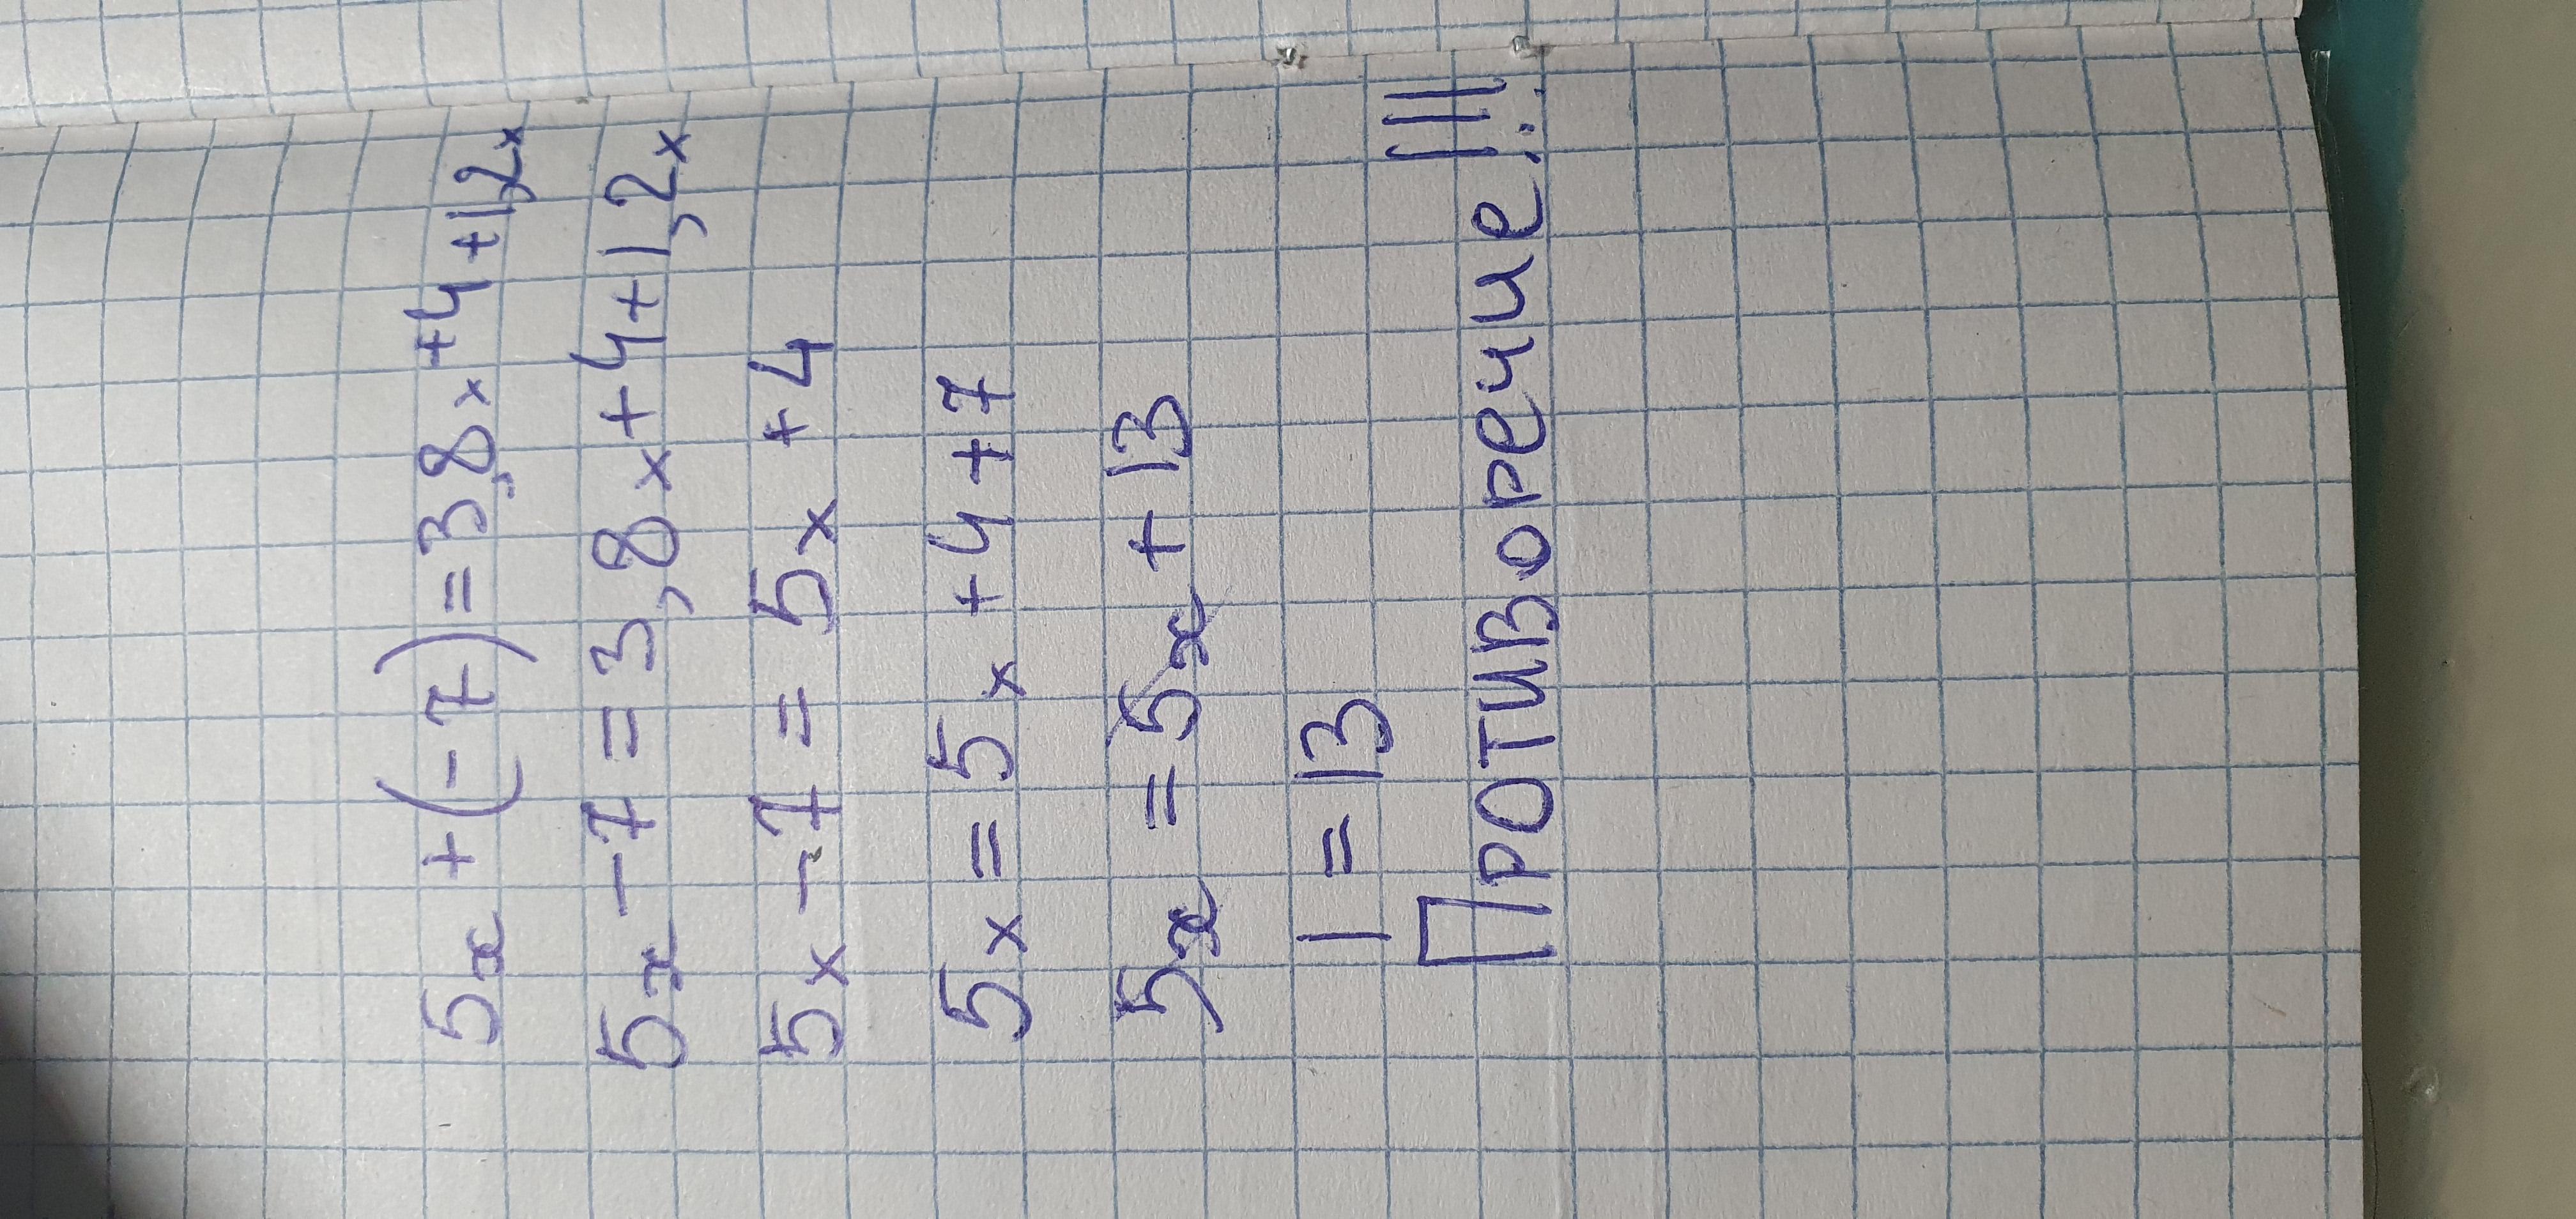 5x + (-7) = 3,8x + 4 + 1,2x
5x - 7 = 3,8x + 4 + 1,2x
5x - 7 = 5x + 4
5x = 5x + 4 + 7
5x = 5x + 13
1 = 13
Противоречие!!!